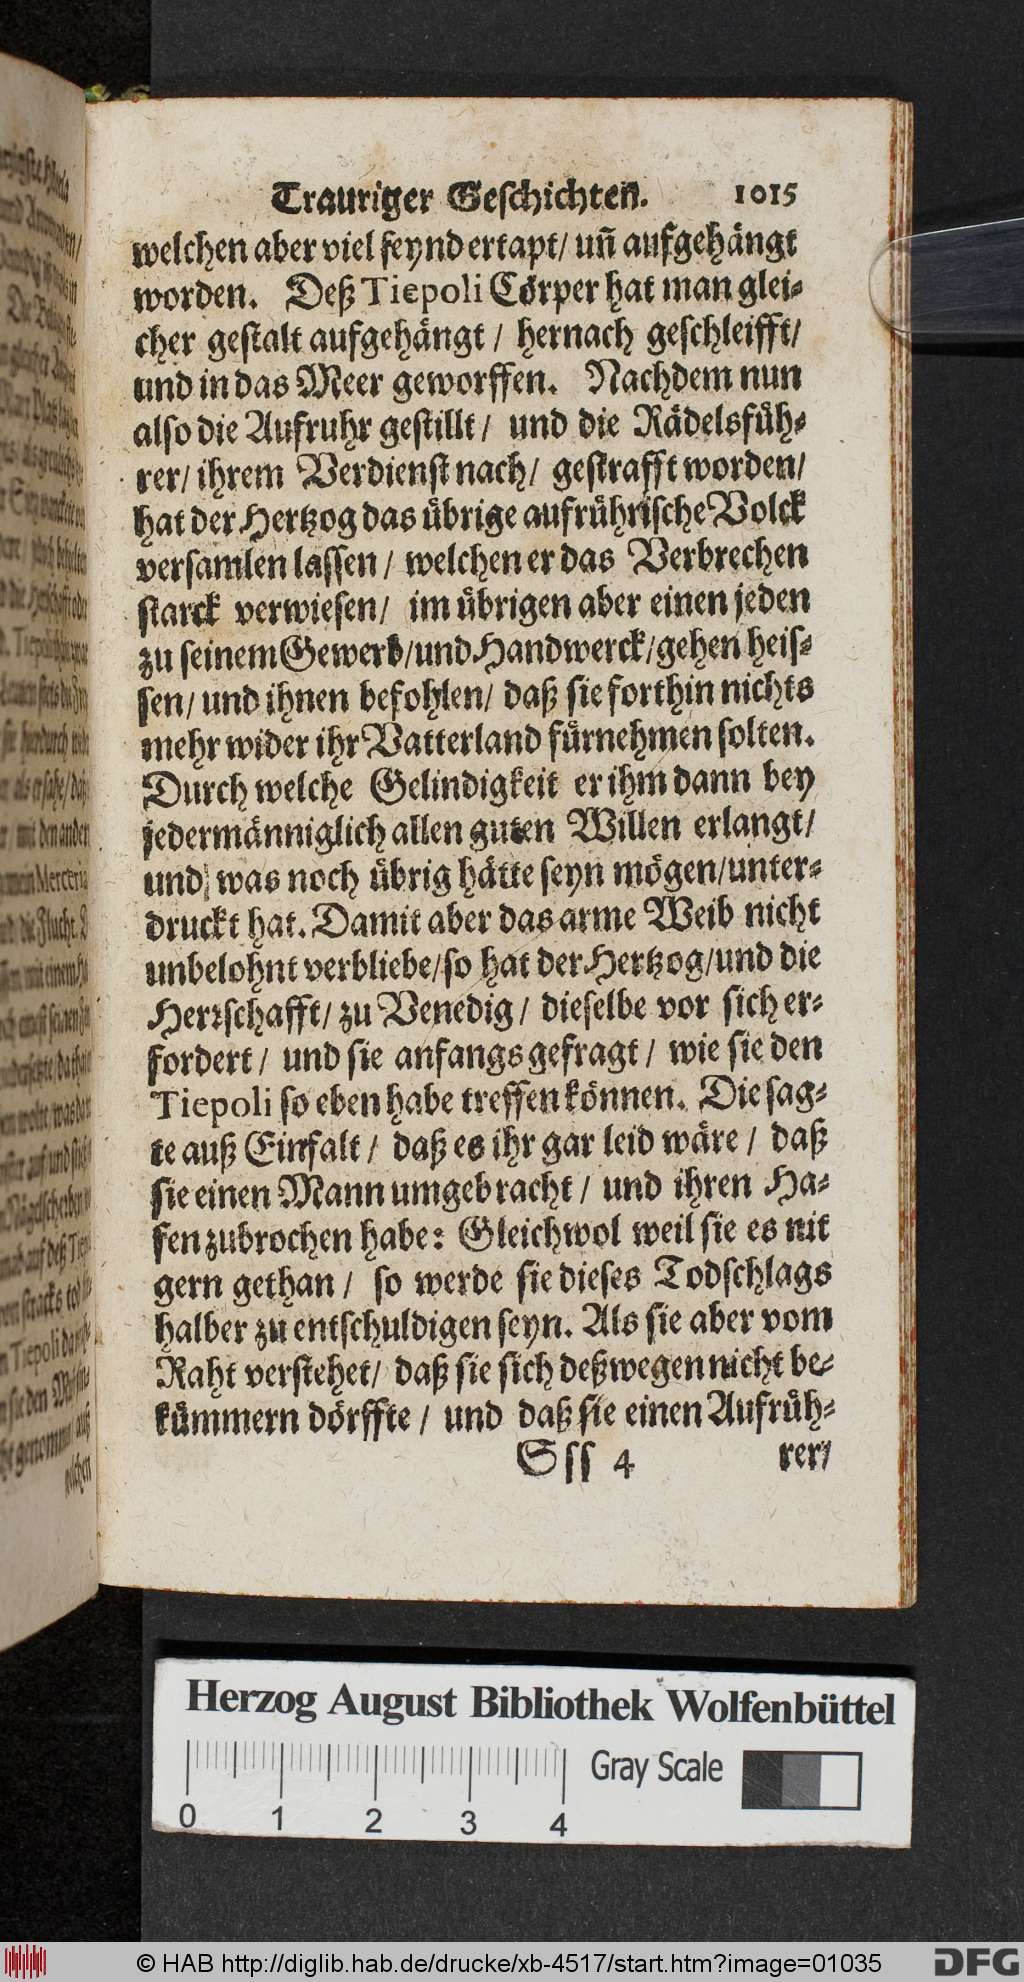 Trauriger Geschichten. 1015
welchen aber viel seynd ertapt/ uñ aufgehängt
worden. Deß Tiepoli Cörper hat man glei-
cher gestalt aufgehängt / hernach geschleifft/
und in das Meer geworffen. Nachdem nun
also die Aufruhr gestillt / und die Rädelsfüh-
rer/ ihrem Verdienst nach/ gestrafft worden/
hat der Hertzog das übrige aufrührische Volck
versamlen lassen / welchen er das Verbrechen
starck verwiesen/ im übrigen aber einen jeden
zu seinem Gewerb/und Handwerck/gehen heis-
sen/ und ihnen befohlen/ daß sie forthin nichts
mehr wider ihr Vatterland fürnehmen solten.
Durch welche Gelindigkeit er ihm dann bey
jedermänniglich allen guten Willen erlangt/
und/ was noch übrig hätte seyn mögen/unter-
druckt hat. Damit aber das arme Weib nicht
unbelohnt verbliebe/so hat der Hertzog/und die
Herꝛschafft/ zu Venedig / dieselbe vor sich er-
fordert / und sie anfangs gefragt / wie sie den
Tiepoli so eben habe treffen können. Die sag-
te auß Einfalt / daß es ihr gar leid wäre / daß
sie einen Mann umgebracht / und ihren Ha-
fen zubrochen habe: Gleichwol weil sie es nit
gern gethan / so werde sie dieses Todschlags
halber zu entschuldigen seyn. Als sie aber vom
Raht verstehet/ daß sie sich deßwegen nicht be-
kümmern dörffte / und daß sie einen Aufrüh-
Sss 4 rer/
Herzog August Bibliothek Wolfenbüttel
Gray Scale
0 1 2 3 4
© HAB http://diglib.hab.de/drucke/xb-4517/start.htm?image=01035
DFG